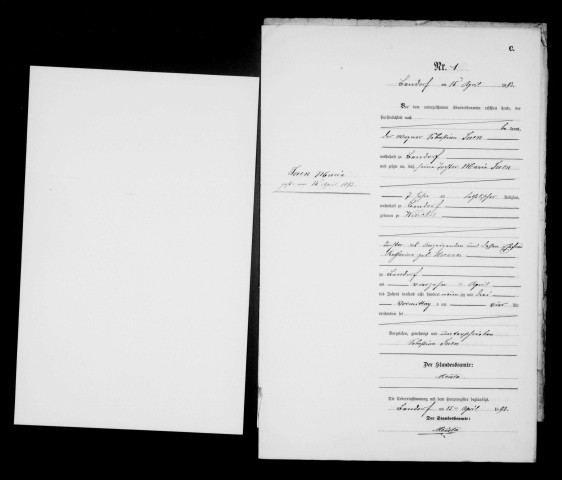 C.
Nr. 1
Landorf am 15 April 1893.
Vor dem unterzeichneten Standesbeamten erschien heute, der
Persönlichkeit nach
be kannt,
der Wagner Sebastian
wohnhaft zu Landorf
und zeigte an, daß seine Tochter Maria
Maria
gest. 14 April 1893.
7 Jahre alt, katholischer Religion,
wohnhaft zu Landorf
geboren zu
Tochter des Anzeigenden und dessen Ehefrau
Katharina geb.
zu Landorf
am vierzehn ten April
des Jahres tausend acht hundert neunzig und drei
Vormittag s um vier Uhr
verstorben sei
Vorgelesen, genehmigt und unterschrieben
Sebastian
Der Standesbeamte:
Die Uebereinstimmung mit dem Hauptregister beglaubigt.
Landorf am 15 ten April 1893.
Der Standesbeamte: